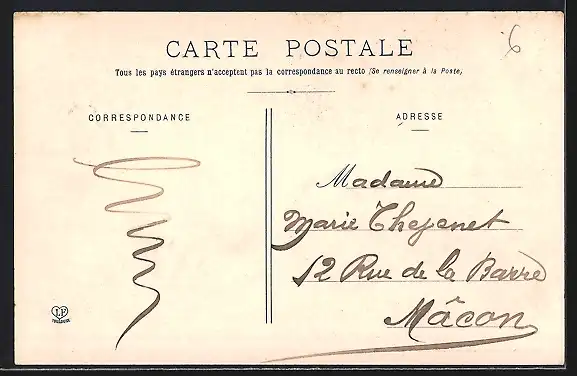 6
CARTE POSTALE
Tous les pays étrangers n'acceptent pas la correspondance au recto (Se renseigner à la Poste)
CORRESPONDANCE
ADRESSE
Madame
Marie Thejenet
12 Rue de la Barre
Mâcon
LF
TOULOUSE